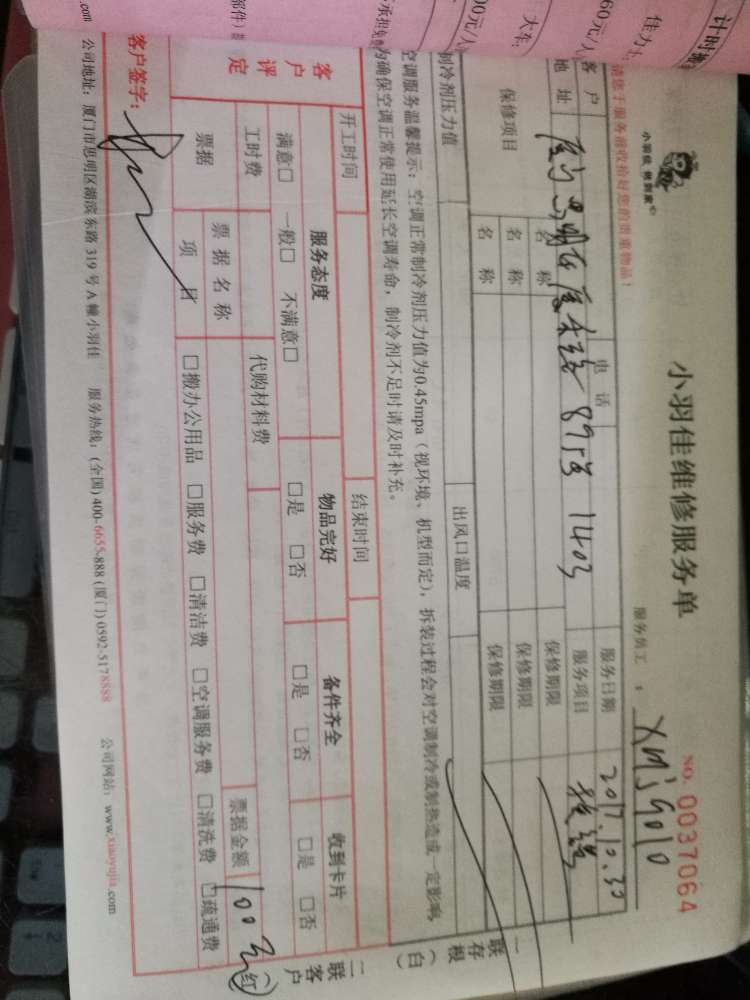 计时搬
佳力士
60元/人
大车:
00元/小
部件)
小羽佳 快到家
小羽佳维修服务单
NO. 0037064
服务员工：
请您于服务前收拾好您的贵重物品！
客户
电话
服务日期
2017.10.30
地址
8953 1403
服务项目
保修项目
名称
保修期限
名称
保修期限
名称
保修期限
制冷剂压力值
出风口温度
空调服务温馨提示：空调正常制冷剂压力值为0.45mpa（视环境、机型而定），拆装过程会对空调制冷或制热造成一定影响，
为确保空调正常使用延长空调寿命，制冷剂不足时请及时补充。
开工时间
结束时间
客户评定
服务态度
物品完好
备件齐全
收到卡片
满意□ 一般□ 不满意□
□是 □否
□是 □否
□是 □否
工时费
代购材料费
票据
票据名称
票据金额
100元
项目
□搬办公用品 □服务费 □清洁费 □空调服务费 □清洗费 □疏通费
客户签字：
一联存根（白）
二联客户（红）
公司地址：厦门市思明区湖滨东路319号A幢小羽佳 服务热线：(全国) 400-6655-888 (厦门) 0592-5178888 公司网站：www.xiaoyujia.com
.com